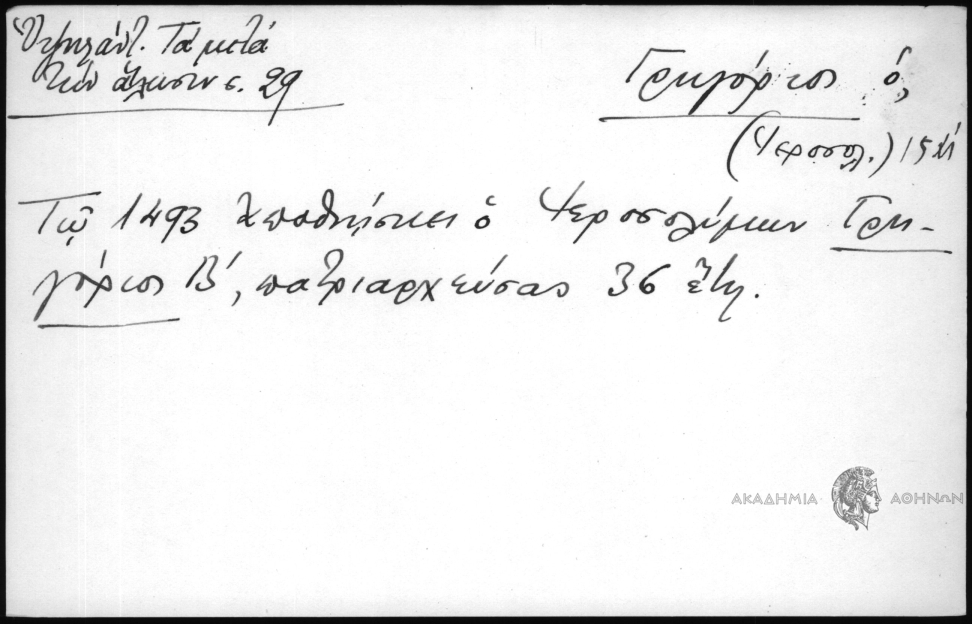 Ὑψηλάντ. Τά μετά
τήν ἅλωσιν σ. 29
Γρηγόριος ὁ,
(Ἱεροσολ.) 15
Τῷ 1493 ἀποθνήσκει ὁ Ἱεροσολύμων Γρη-
γόριος Β', πατριαρχεύσας 36 ἔτη.
ΑΚΑΔΗΜΙΑ ΑΘΗΝΩΝ